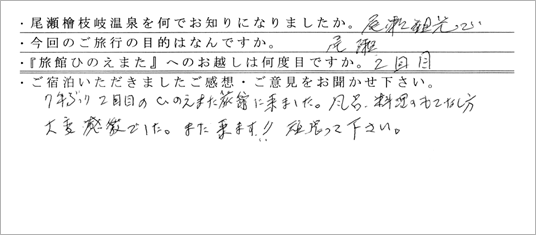 ・尾瀬檜枝岐温泉を何でお知りになりましたか。尾瀬観光で
・今回のご旅行の目的はなんですか。 尾瀬
・『旅館ひのえまた』へのお越しは何度目ですか。2回目
・ご宿泊いただきましたご感想・ご意見をお聞かせ下さい。
7年ぶり2回目のひのえまた旅館に来ました。風呂、料理、もてなし方
大変感激でした。また来ます!! 頑張って下さい。